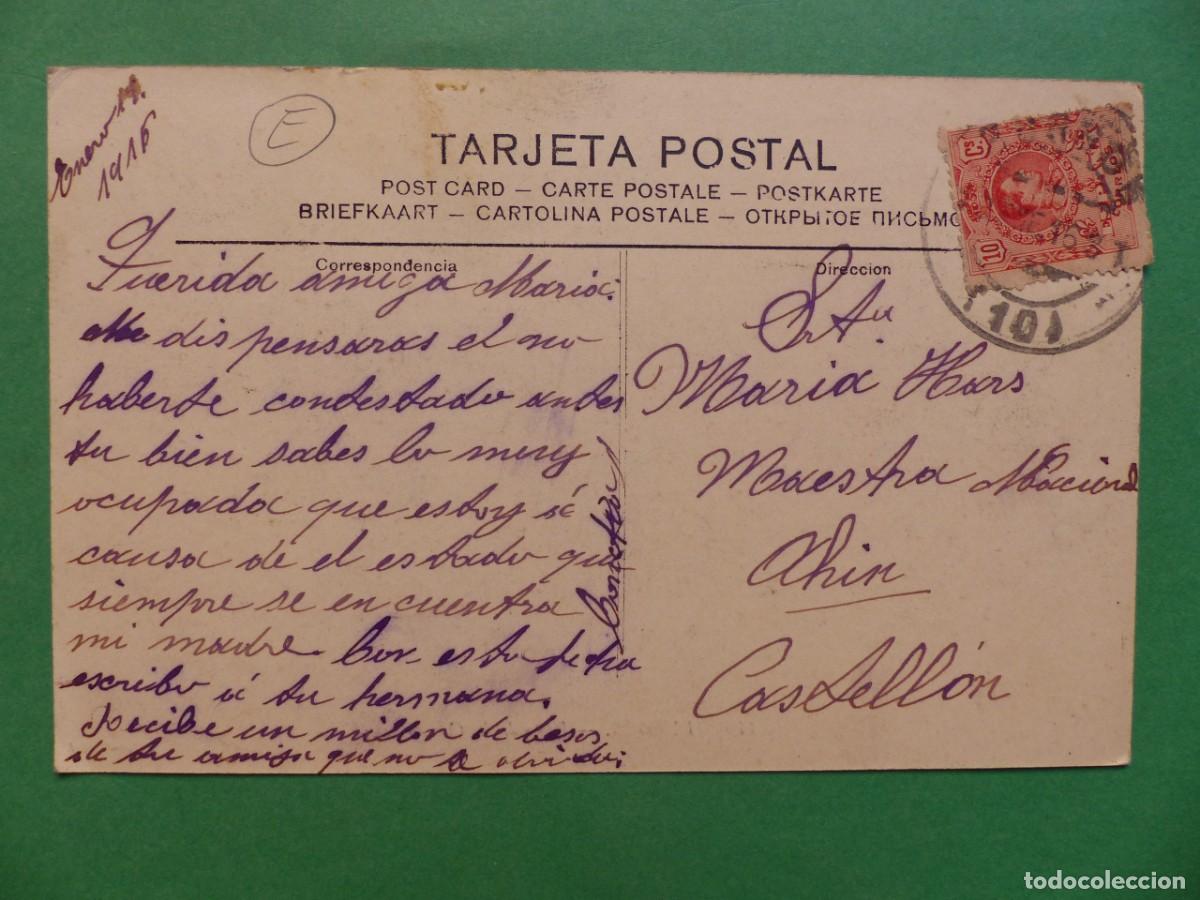 Enero 19.
1916
E
TARJETA POSTAL
POST CARD – CARTE POSTALE – POSTKARTE
BRIEFKAART – CARTOLINA POSTALE – ОТКРЫТОЕ ПИСЬМО
Correspondencia
Querida amiga Maria:
Me dispensaras el no
haberte condestado antes
tu bien sabes lo muy
ocupada que estoy á
causa de el estado que
siempre se en cuentra
mi madre. Con esta fecha
escribo á tu hermana.
Recibe un millon de besos
de tu amiga que no te olvida:
Direccion
Srta
Maria
Maestra Nacional
Ahin
Castellón
10 Cs
101
todocoleccion
www.todocoleccion.net